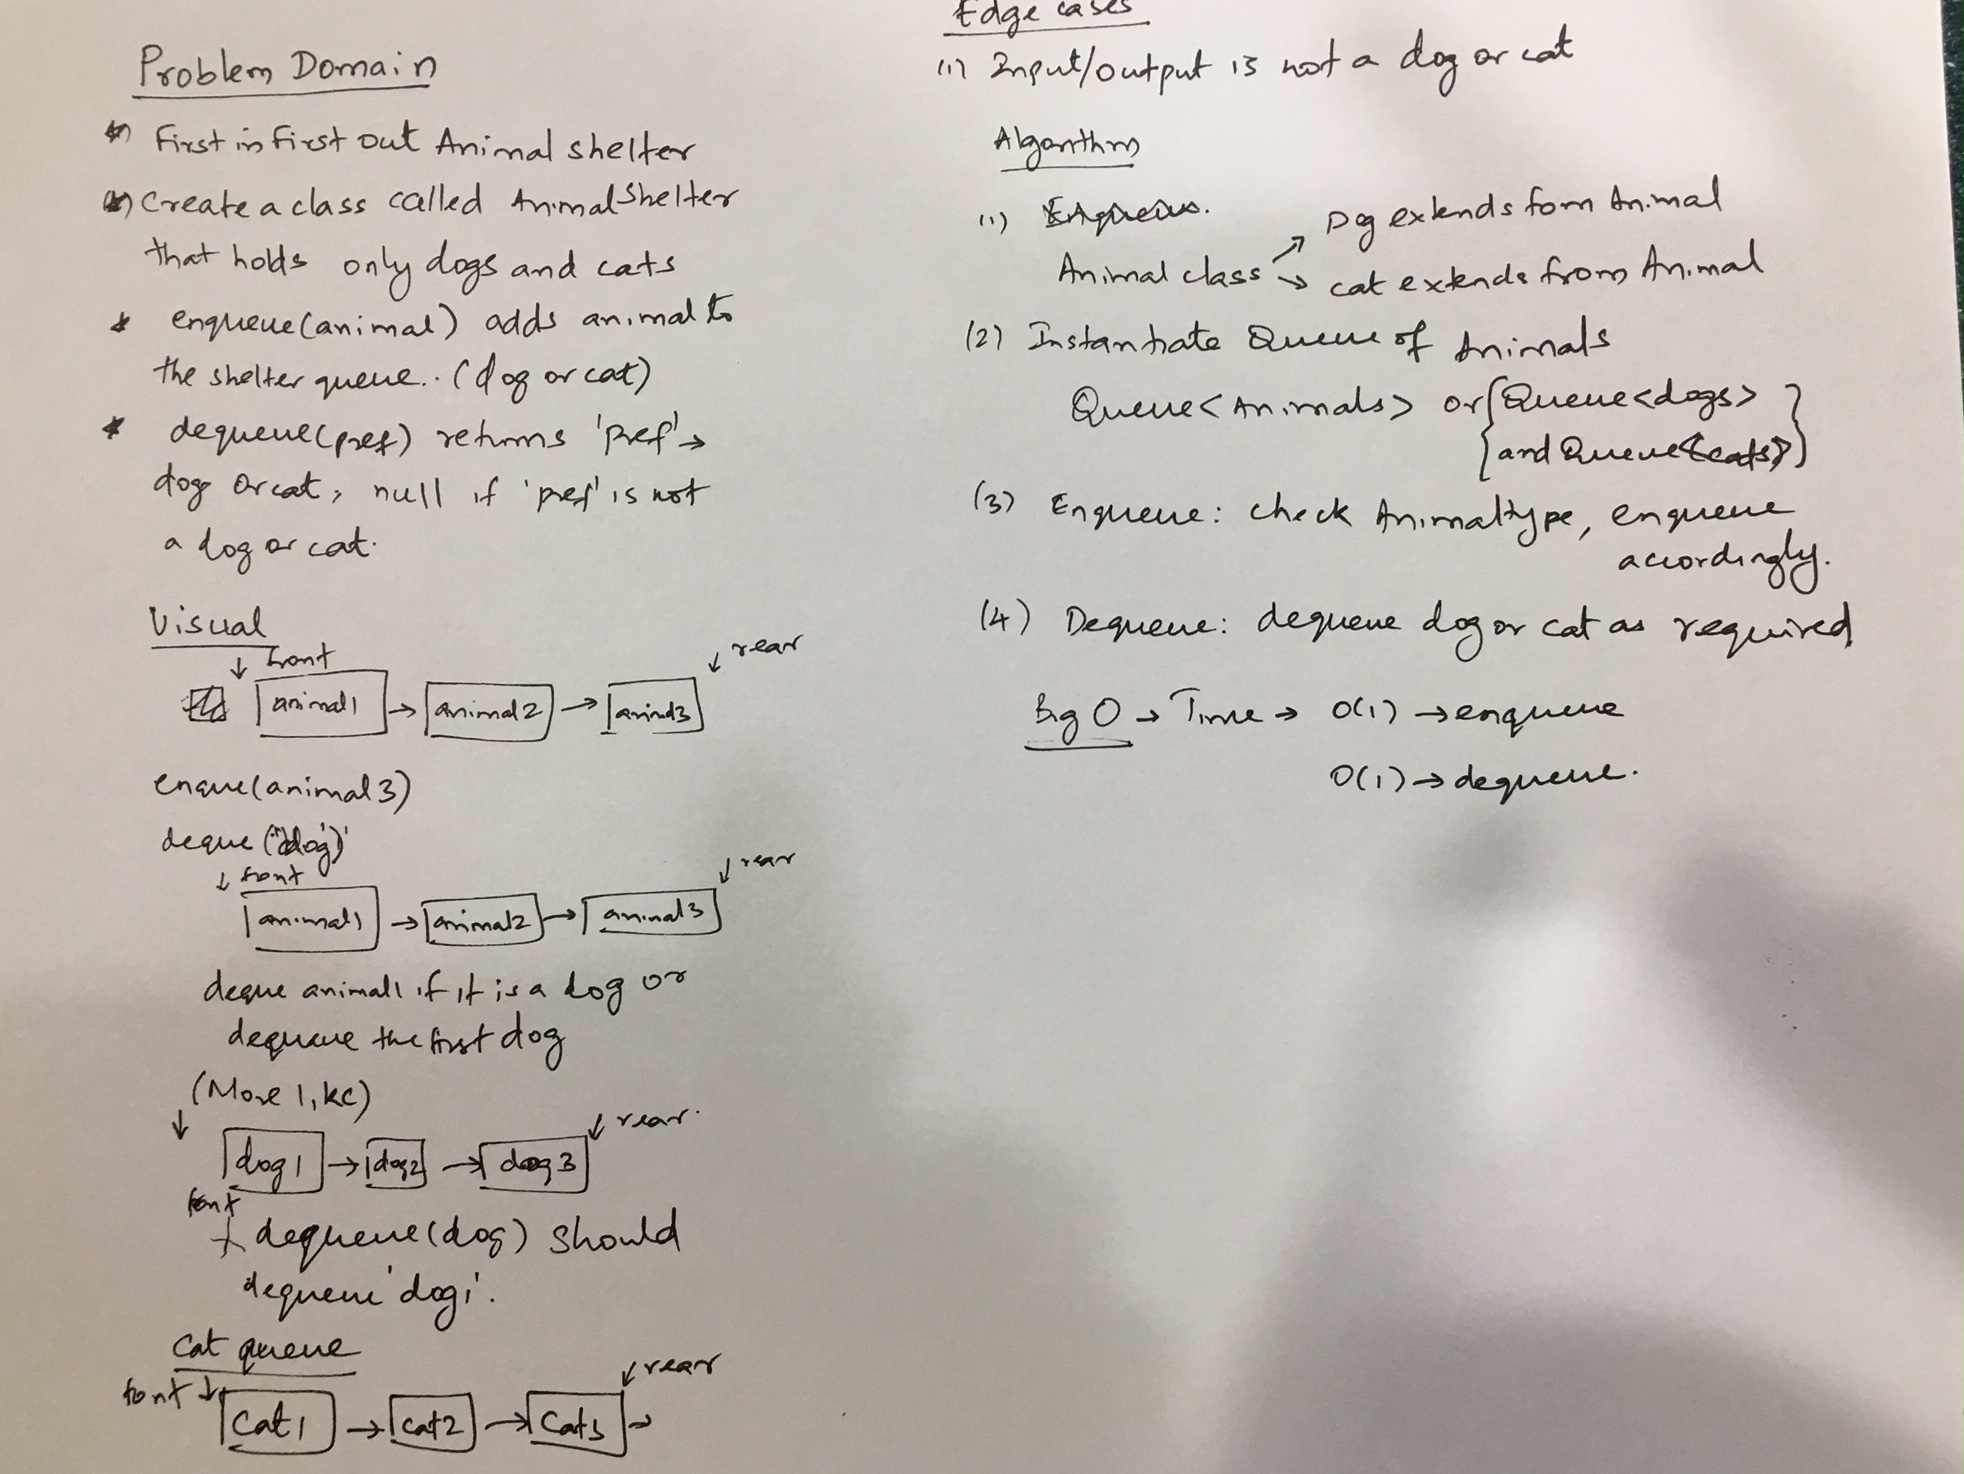 Problem Domain
First in First out Animal shelter
Create a class called AnimalShelter
that holds only dogs and cats
* enqueue(animal) adds animal to
the shelter queue.. (dog or cat)
* dequeue(pref) returns 'pref' →
dog or cat, null if 'pref' is not
a dog or cat.
Visual
↓ front ↓ rear
animal1 → animal2 → anim3
enque(animal3)
deque("dog")
↓ front ↓ rear
animal1 → animal2 → animal3
deque animal1 if it is a dog or
dequeue the first dog
(More
↓ ↓ rear.
dog1 → dog2 → dog3
font
dequeue(dog) should
dequeue 'dog1'.
Cat queue
font ↓ ↓ rear
Cat1 → Cat2 → Cat3 →
Edge cases
(1) Input/output is not a dog or cat
Algorithm
(1) Enqueue.
Dog extends from Animal
Animal class
cat extends from Animal
(2) Instantiate Queue of Animals
Queue<Animals> or {Queue<dogs>
and Queue<cats>}
(3) Enqueue: check Animaltype, enqueue
accordingly.
(4) Dequeue: dequeue dog or cat as required
Big O → Time → O(1) → enqueue
O(1) → dequeue.